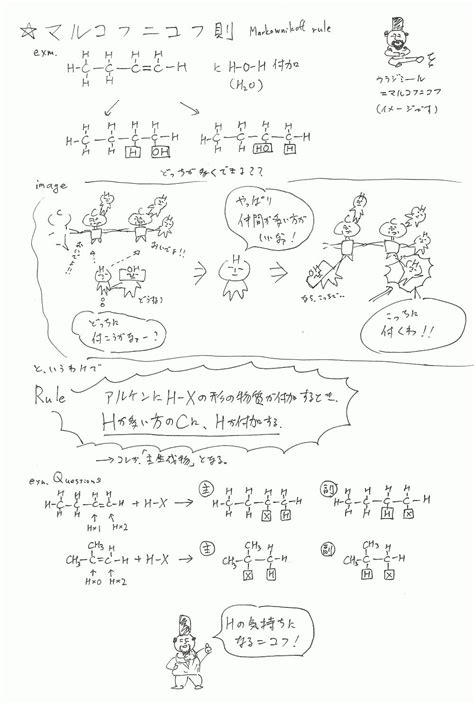 ☆マルコフニコフ則 Markownikoff rule
exm.
H H H H
H-C-C-C=C-H に H-O-H 付加
H H
(H₂O)
ウラジミール
=マルコフニコフ
(イメージです)
H H H H
H-C-C-C-C-H
H H H OH
H H H H
H-C-C-C-C-H
H H HO H
どっちが多くできる??
image
おいでよ!!
どうする?
どっちに
付こうかなー?
やっぱり
仲間が多い方が
いいな!
なら、こっちで…
こっちに
付くわ!!
と、いうわけで
Rule
アルケンにH-Xの形の物質が付加するとき、
Hが多い方のCに、Hが付加する。
→コレが「主生成物」となる。
exm. Questions
H H H H
H-C-C-C=C-H + H-X → 主 副
H×1 H×2
CH₃ H
CH₃-C=C-H + H-X → 主 副
H×0 H×2
Hの気持ちに
なるニコフ!